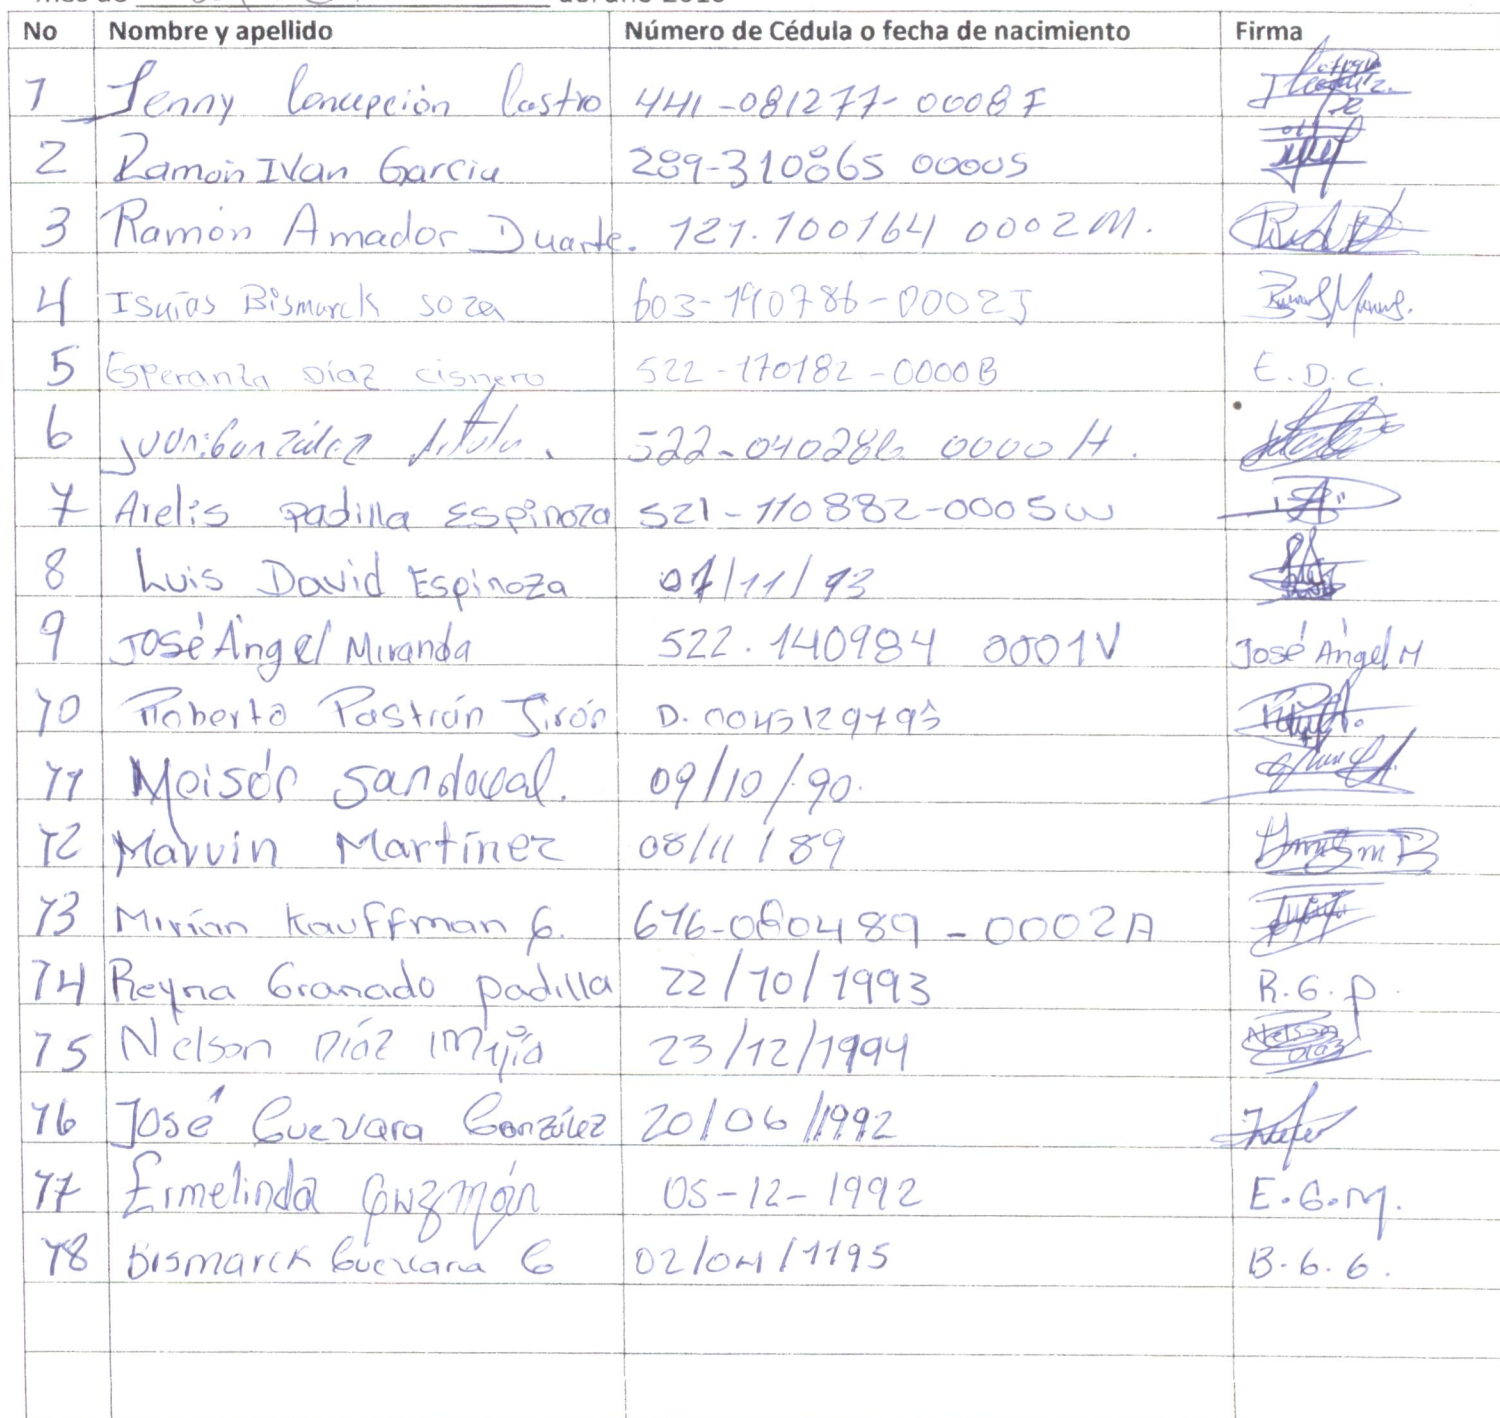 No Nombre y apellido Número de Cédula o fecha de nacimiento Firma
1 Jenny Concepción Castro 441-081277-0008F
2 Ramón Ivan Garcia 289-310865 0000S
3 Ramón Amador Duarte. 121.100164 0002M.
4 Isaías Bismarck soza 603-190786-0002J
5 Esperanza Díaz cisnero 522-170182-0000B E.D.C.
6 Juan González 522-040286 0000H.
7 Arelis padilla Espinoza 521-110882-0005W
8 Luis David Espinoza 07/11/93
9 José Ángel Miranda 522.140984 0001V José Ángel M
10 Roberto Pastrán Jirón D.
11 Moisés Sandoval. 09/10/90.
12 Marvin Martínez 08/11/89
13 Mirían Kauffman G. 616-080489-0002A
14 Reyna Granado padilla 22/10/1993 R.G.P.
15 Nelson Díaz Mejía 23/12/1994 Nelson Díaz
16 José Guevara González 20/06/1992
17 Ermelinda Guzmán 05-12-1992 E.G.M.
18 Bismarck Guevara G 02/04/1195 B.G.G.